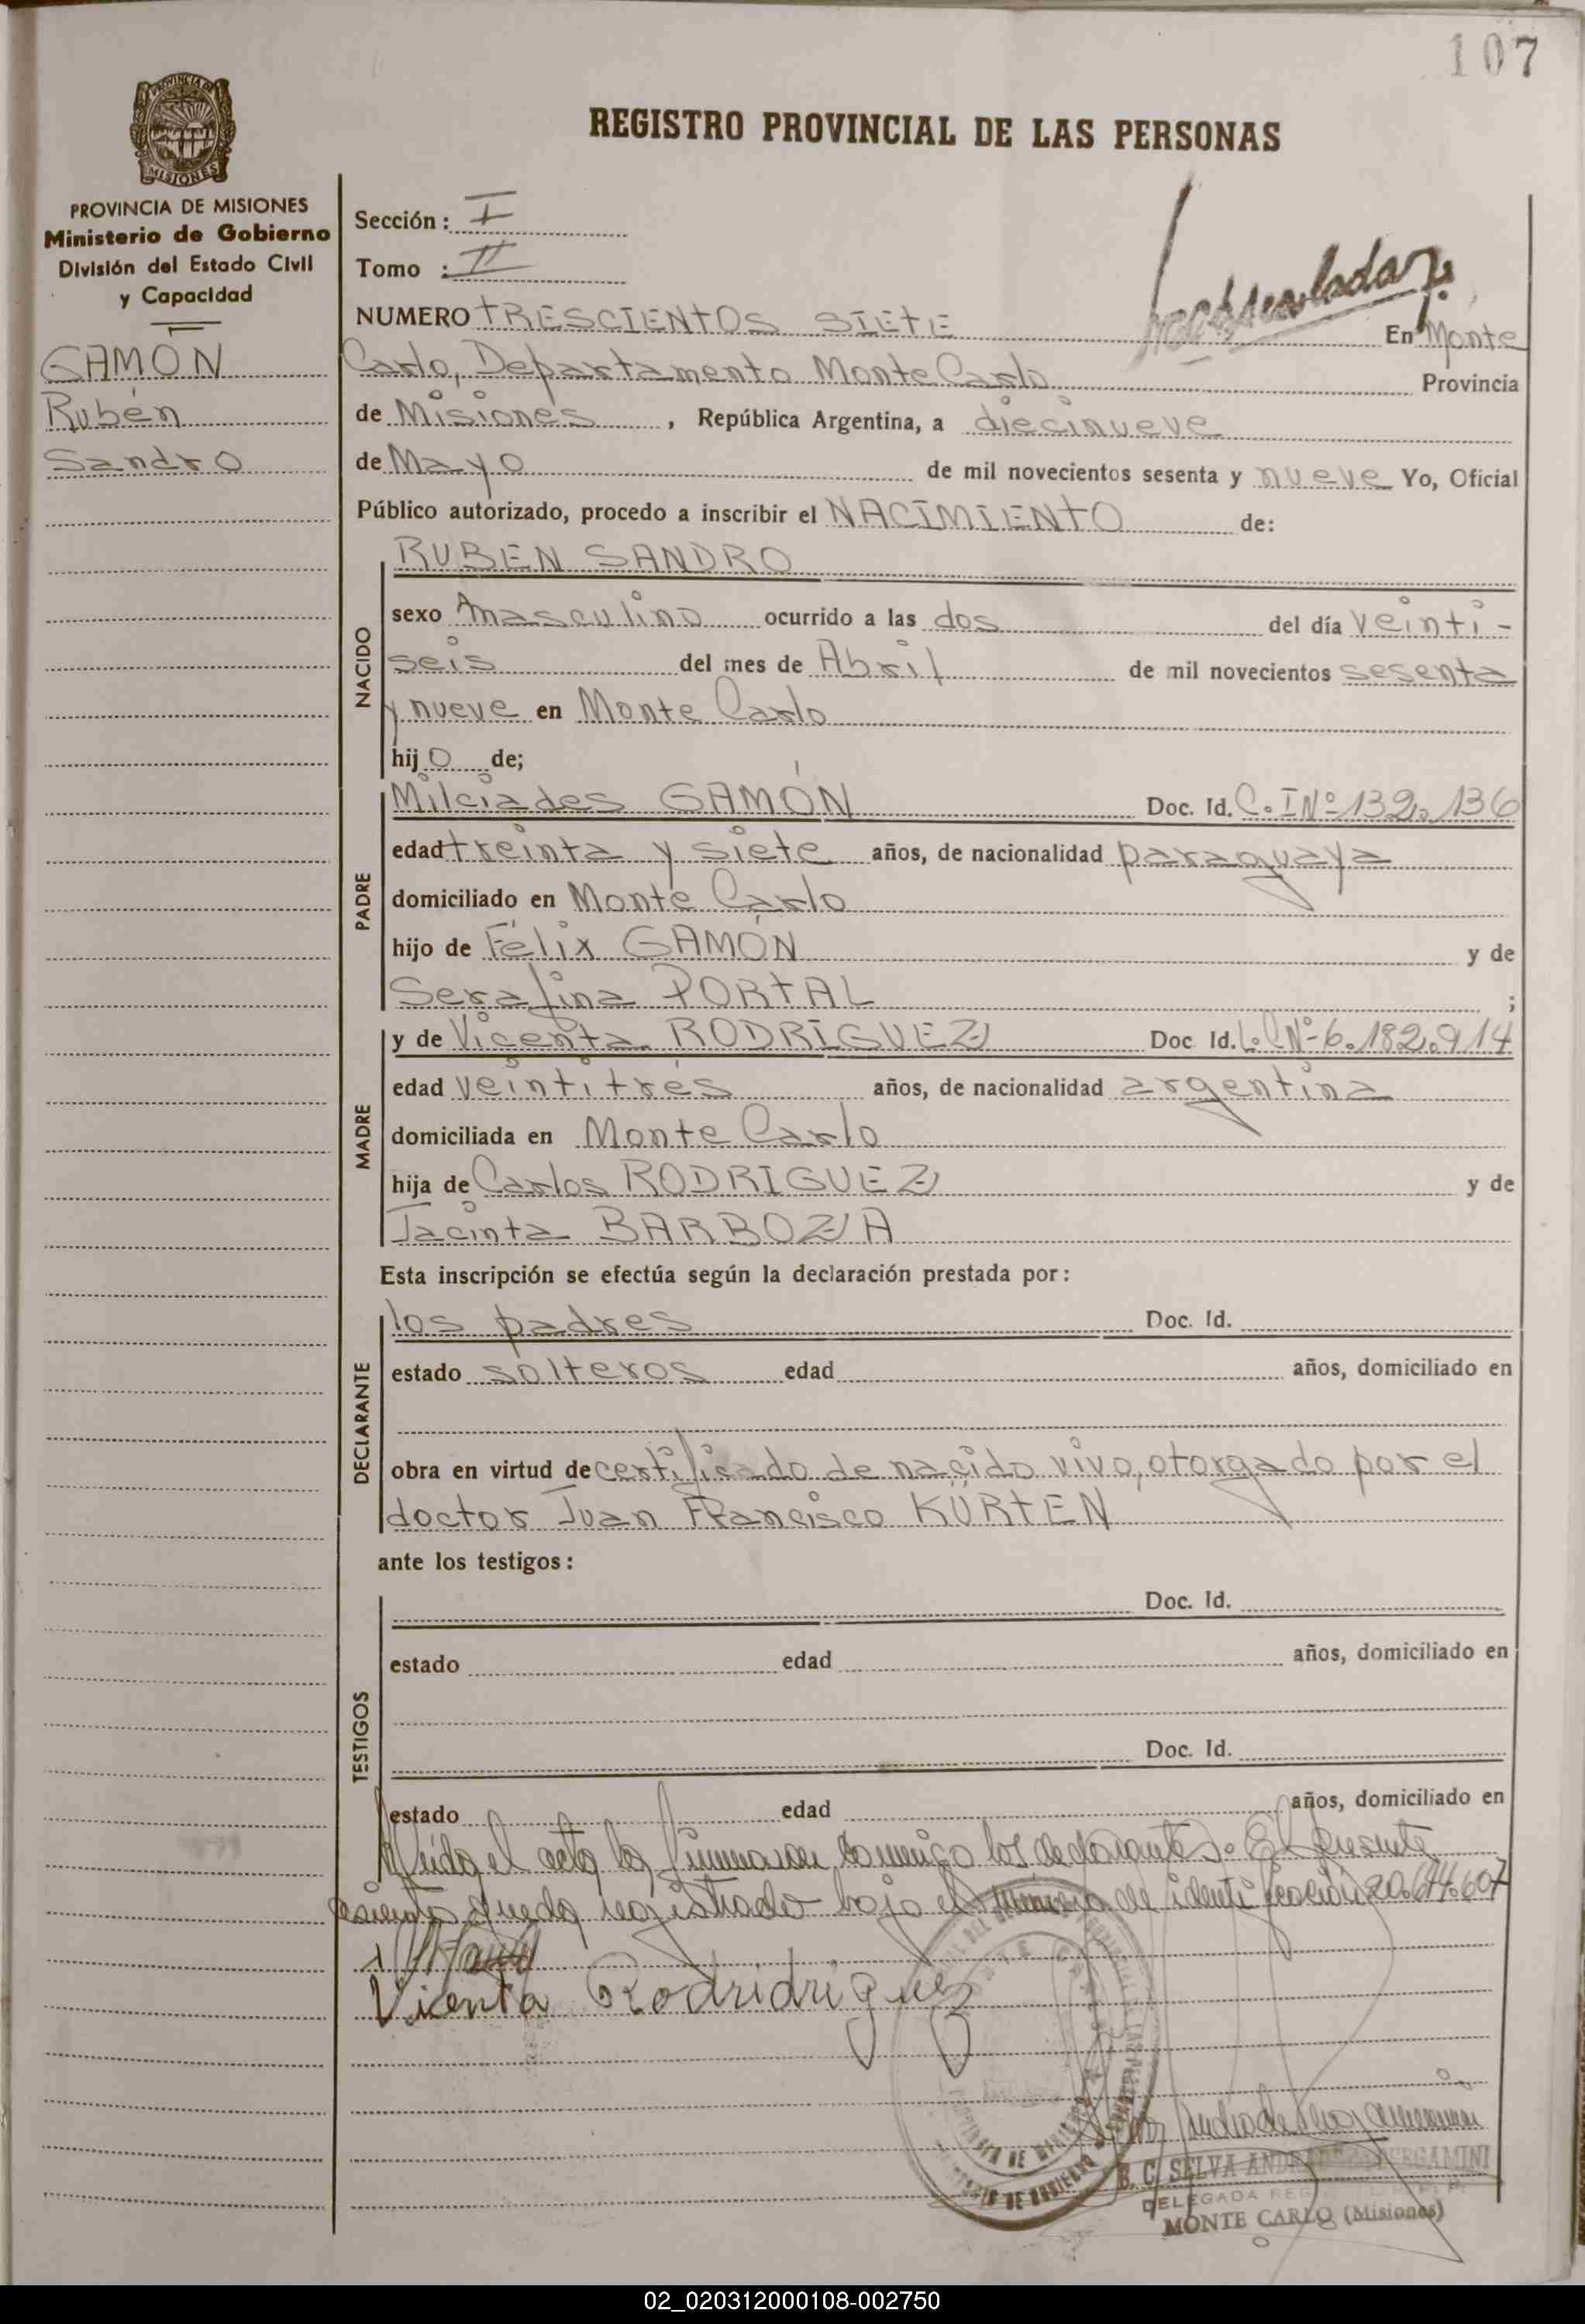 107
PROVINCIA DE
MISIONES
REGISTRO PROVINCIAL DE LAS PERSONAS
PROVINCIA DE MISIONES
Ministerio de Gobierno
División del Estado Civil
y Capacidad
GAMÓN
Rubén
Sandro
Sección: I
Tomo : II
NUMERO TRESCIENTOS SIETE En Monte
Carlo, Departamento Monte Carlo Provincia
de Misiones, República Argentina, a diecinueve
de Mayo de mil novecientos sesenta y nueve Yo, Oficial
Público autorizado, procedo a inscribir el NACIMIENTO de:
NACIDO
RUBEN SANDRO
sexo masculino ocurrido a las dos del día veinti-
seis del mes de Abril de mil novecientos sesenta
y nueve en Monte Carlo
hijo de;
PADRE
Milciades GAMÓN Doc. Id. C. I Nº 132.136
edad treinta y siete años, de nacionalidad paraguaya
domiciliado en Monte Carlo
hijo de Félix GAMÓN y de
Serafina PORTAL ;
MADRE
y de Vicenta RODRÍGUEZ Doc Id. L. C Nº 6.182.914
edad veintitrés años, de nacionalidad argentina
domiciliada en Monte Carlo
hija de Carlos RODRIGUEZ y de
Jacinta BARBOZA
Esta inscripción se efectúa según la declaración prestada por:
DECLARANTE
los padres Doc. Id.
estado solteros edad años, domiciliado en
obra en virtud de certificado de nacido vivo, otorgado por el
doctor Juan Francisco KÜRTEN
ante los testigos:
TESTIGOS
Doc. Id.
estado edad años, domiciliado en
Doc. Id.
estado edad años, domiciliado en
Leída el acta la firmaron conmigo los declarantes. El presente
asiento queda registrado bajo el número de identificación 20.644.607
Vicenta Rodridriguez
B. C. SELVA ANDRADE BERGAMINI
DELEGADA
MONTE CARLO (Misiones)
02_020312000108-002750